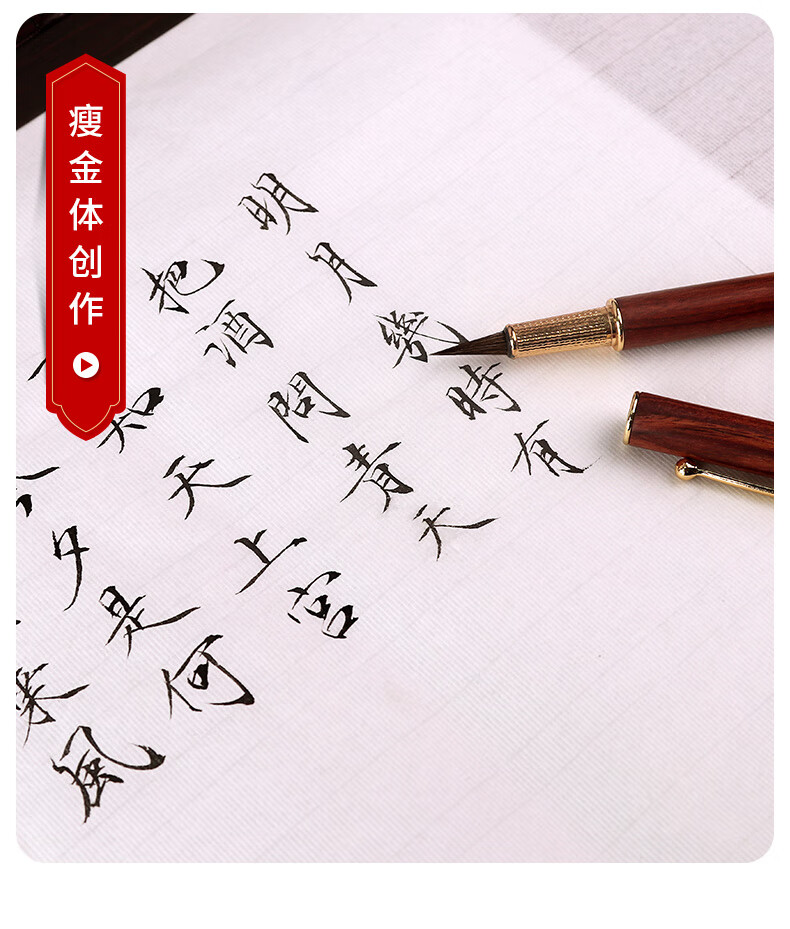 瘦金体创作
明月幾時有
把酒問青天
知天上宮
夕是何
乘風